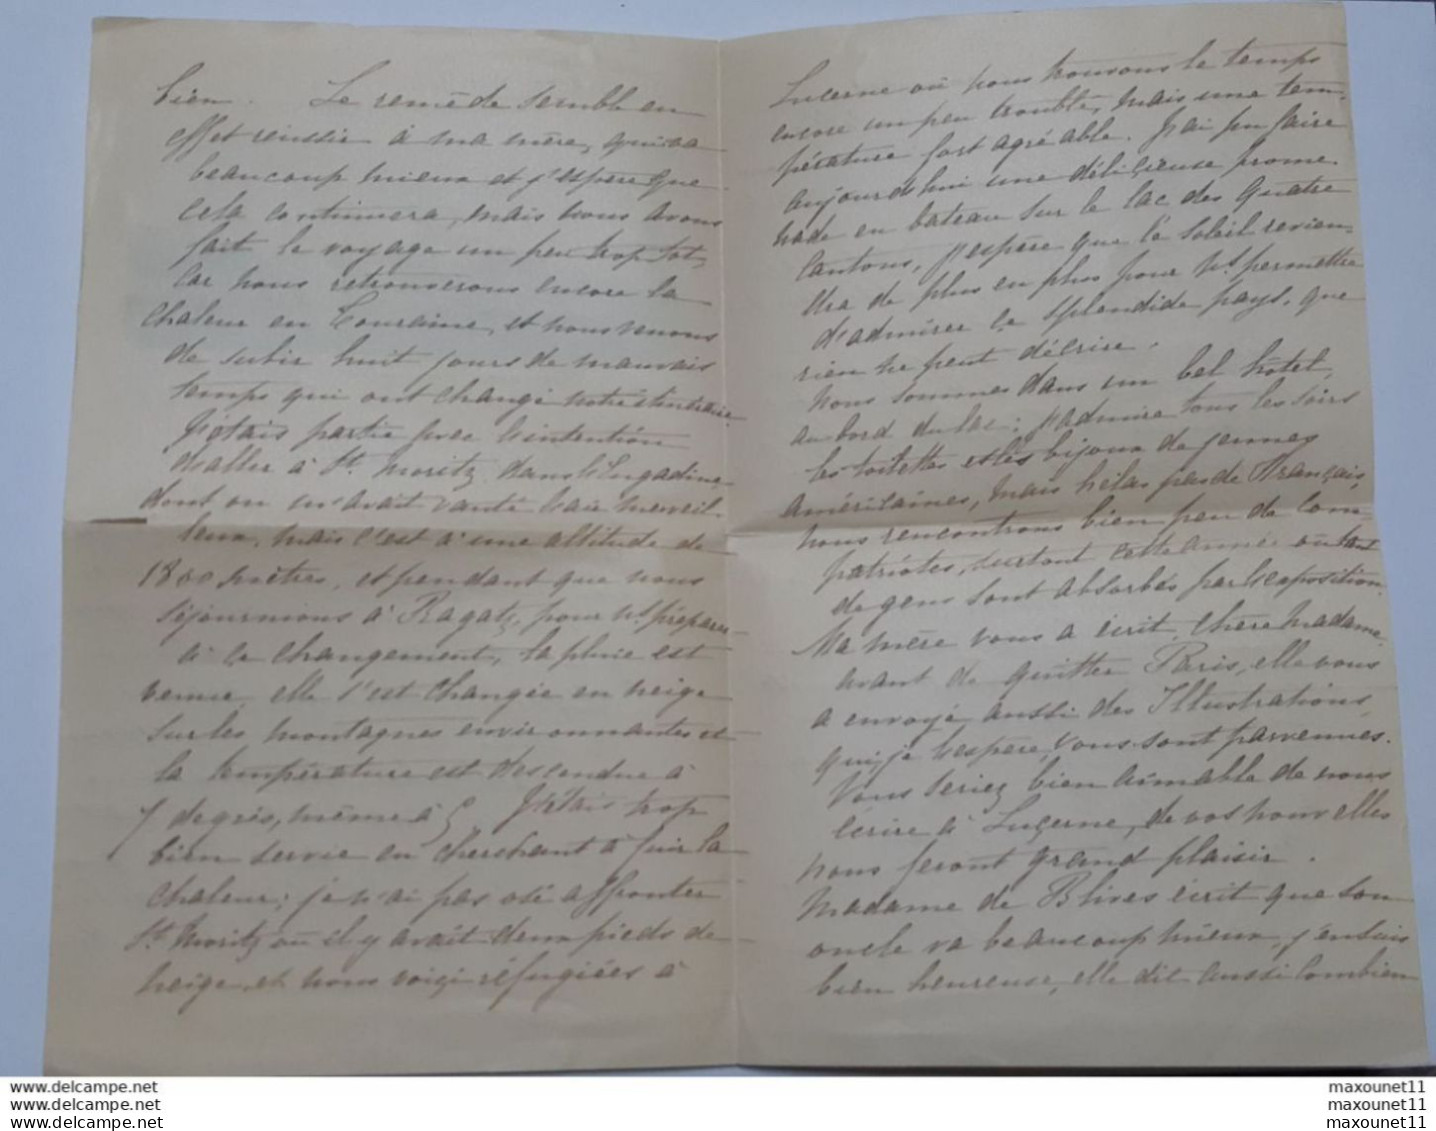 bien. Le remède semble en
effet réussir à ma mère, qui va
beaucoup mieux et j'espère que
cela continuera, mais nous avons
fait le voyage un peu trop tôt,
car nous retrouverons encore la
chaleur en Touraine, et nous venons
de subir huit jours de mauvais
temps qui ont changé notre itinéraire.
J'étais partie avec l'intention
d'aller à St. Moritz, dans l'Engadine,
dont on m'avait vanté l'air merveil-
leux, mais c'est à une altitude de
1800 mètres, et pendant que nous
séjournions à Ragatz, pour ns. préparer
à ce changement, la pluie est
venue, elle s'est changée en neige
sur les montagnes environnantes et
la température est descendue à
7 degrés, même à 5. J'étais trop
bien servie en cherchant à fuir la
chaleur; je n'ai pas osé affronter
St. Moritz où il y avait deux pieds de
neige, et nous voici réfugiées à
Lucerne où nous trouvons le temps
encore un peu trouble, mais une tem-
pérature fort agréable. J'ai pu faire
aujourd'hui une délicieuse prome-
nade en bateau sur le lac des Quatre
Cantons, j'espère que le soleil revien-
dra de plus en plus pour ns. permettre
d'admirer ce splendide pays, que
rien ne peut décrire.
Nous sommes dans un bel hôtel,
au bord du lac; j'admire tous les soirs
les toilettes et les bijoux de jeunes
américaines, mais hélas pas de Français,
nous rencontrons bien peu de com-
patriotes, surtout cette année où tant
de gens sont absorbés par l'exposition.
Ma mère vous a écrit, chère Madame,
avant de quitter Paris, elle vous
a envoyé aussi des Illustrations,
qui, je l'espère, vous sont parvenues.
Vous seriez bien aimable de nous
écrire à Lucerne, de vos nouvelles
nous feront grand plaisir.
Madame de Blives écrit que son
oncle va beaucoup mieux, j'en suis
bien heureuse, elle dit aussi combien
www.delcampe.net
www.delcampe.net
www.delcampe.net
maxounet11
maxounet11
maxounet11